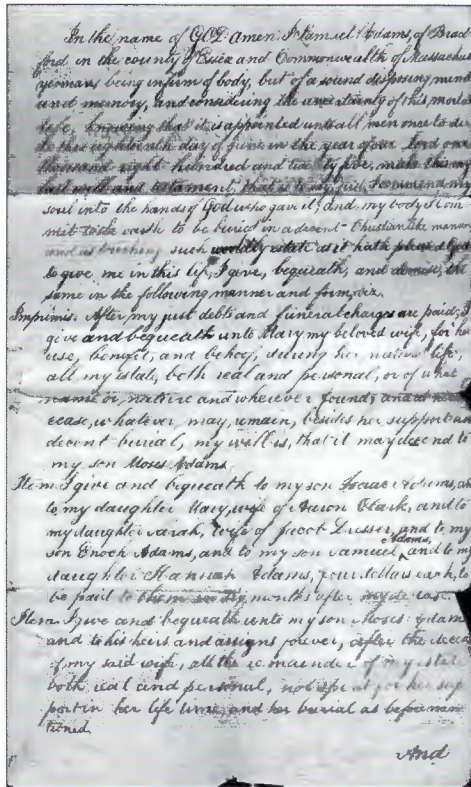 In the name of GOD amen I Samuel Adams, of Brad
ford in the county of Essex and Commonwealth of Massachus
yeoman being infirm of body, but of a sound disposing mind
and memory, and considering the uncertainty of this mortal
life, knowing that it is appointed unto all men once to die
do this eighteenth day of June in the year of our Lord one
thousand eight hundred and twenty five, make this my
last will and testament, that is to say first, I commend my
soul into the hands of God who gave it; and my body I com
mit to the earth to be buried in a decent Christianlike manner
and as touching such worldly estate as it hath pleased God
to give me in this life, I give, bequeath, and demise, the
same in the following manner and form, viz.
Imprimis. After my just debts and funeral charges are paid; I
give and bequeath unto Mary my beloved wife, for her
use, benefit, and behoof, during her natural life,
all my estate, both real and personal, or of what
name or nature and wherever found; and at her
cease, whatever, may, remain, besides her support and
decent burial, my will is, that it may decend to
my son Moses Adams.
Item I give and bequeath to my son Isaac Adams, and
to my daughter Mary, wife of Aaron Clark, and to
my daughter Sarah, wife of Jacob Dresser, and to my
son Enoch Adams, and to my son Samuel Adams, and to my
daughter Hannah Adams, four dollars each, to
be paid to them in six months after my decease.
Item I give and bequeath unto my son Moses Adams
and to his heirs and assigns forever, after the decea
of my said wife, all the remainder of my estate
both real and personal, not spent for her sup
port in her life time, and her burial as before men
tioned.
And